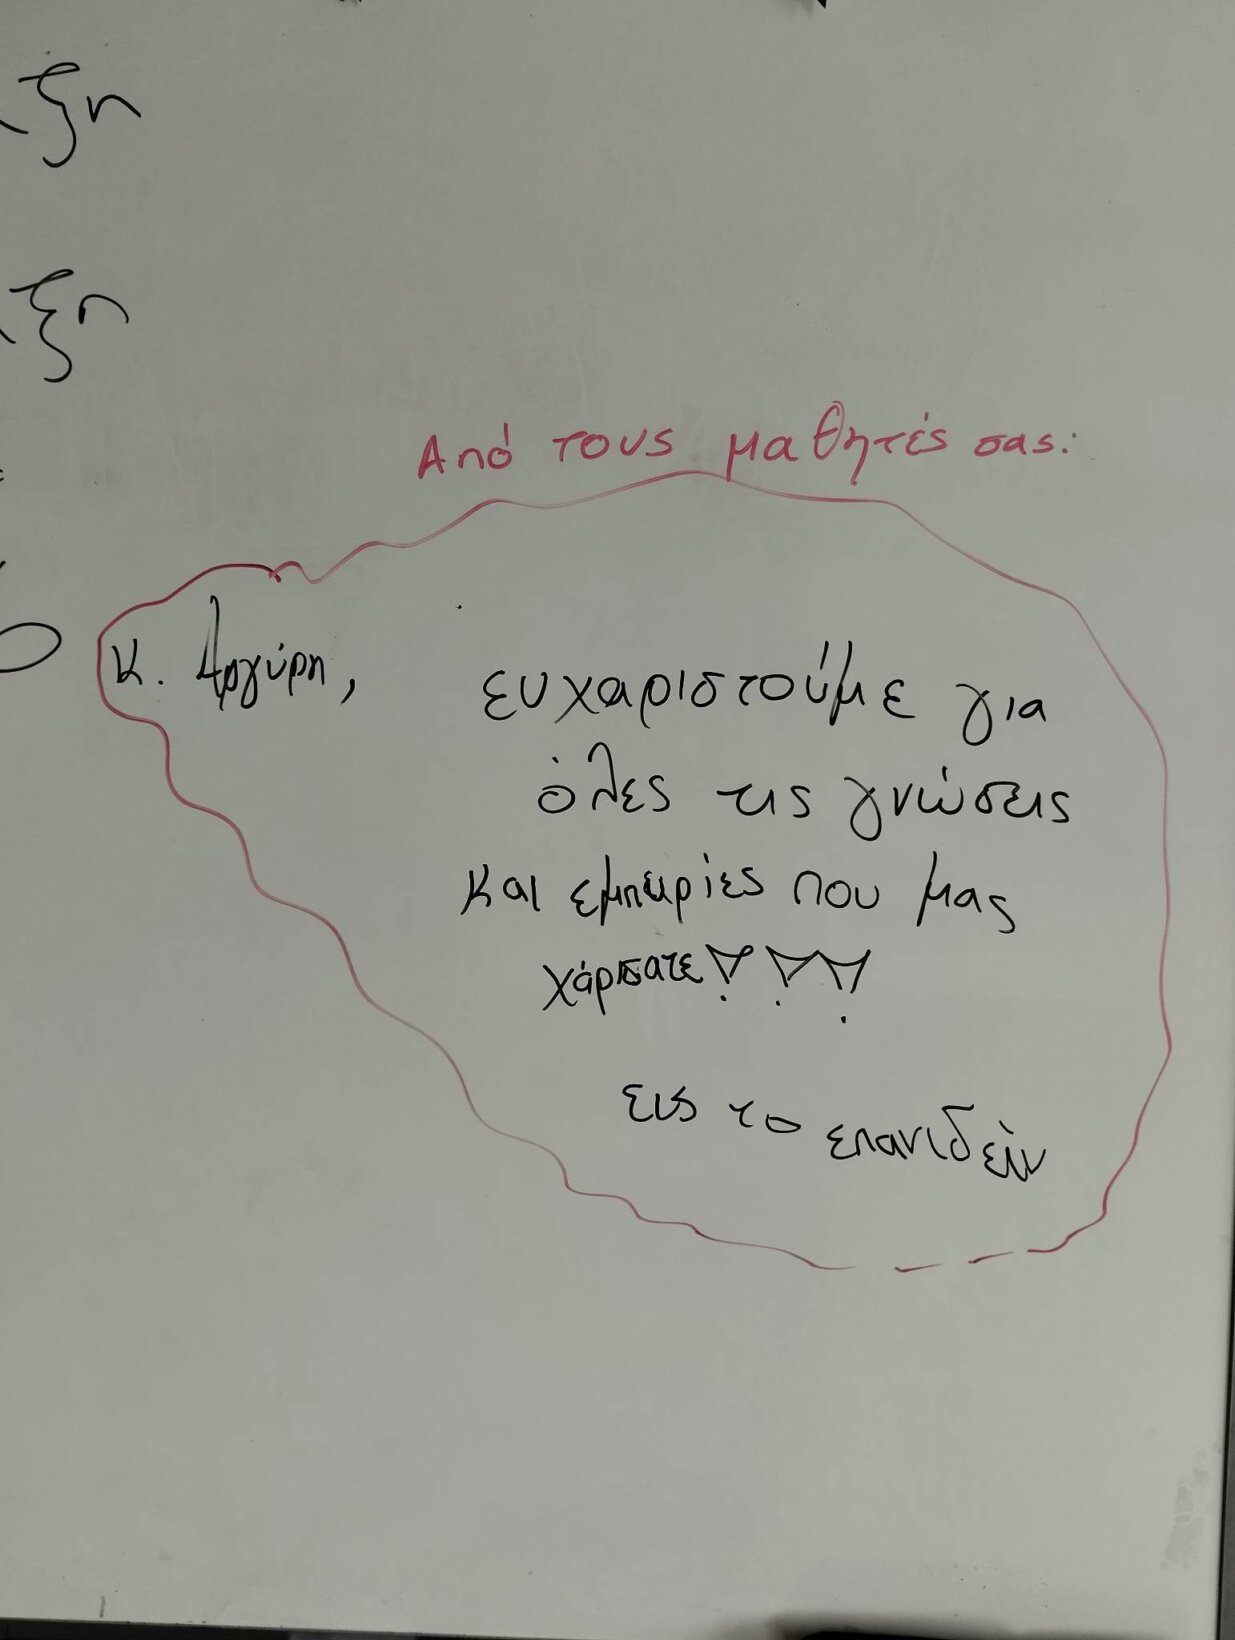 ξη
ξη
Από τους μαθητές σας:
κ. Αργύρη,
ευχαριστούμε για
όλες τις γνώσεις
και εμπειρίες που μας
χάρισατε!!!
εις το επανιδείν